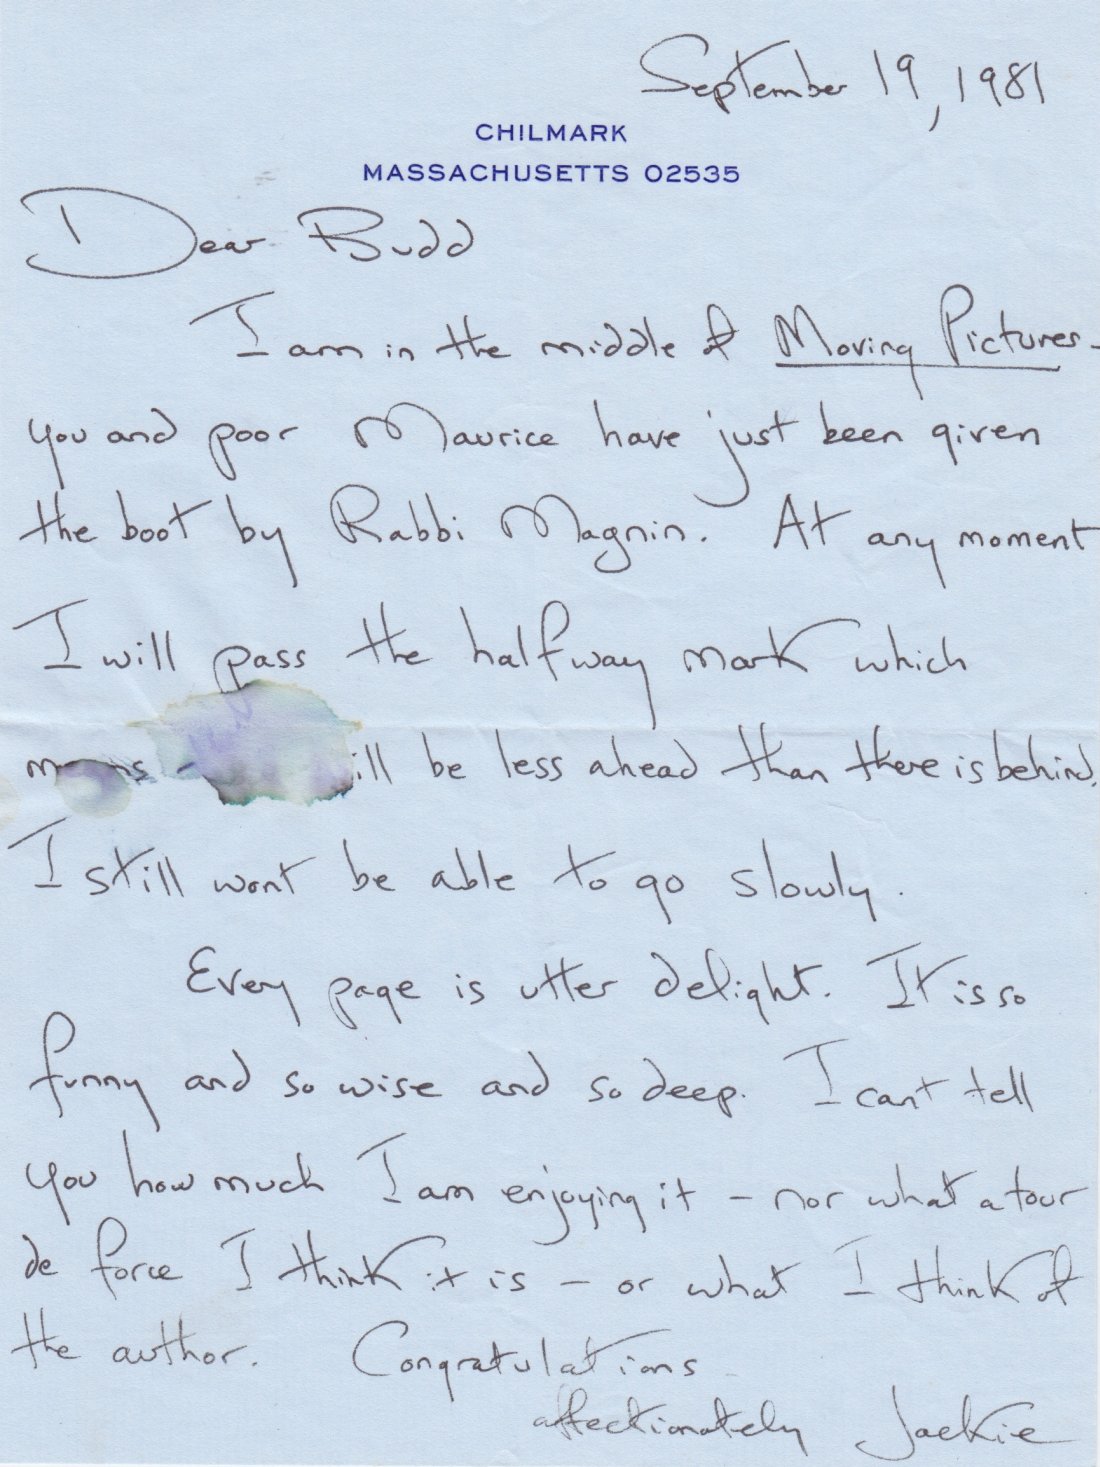 September 19, 1981
CHILMARK
MASSACHUSETTS 02535
Dear Budd
I am in the middle of Moving Pictures -
you and poor Maurice have just been given
the boot by Rabbi Magnin. At any moment
I will pass the halfway mark which
means - be less ahead than there is behind.
I still wont be able to go slowly.
Every page is utter delight. It is so
funny and so wise and so deep. I cant tell
you how much I am enjoying it - nor what a tour
de force I think it is - or what I think of
the author. Congratulations
affectionately Jackie